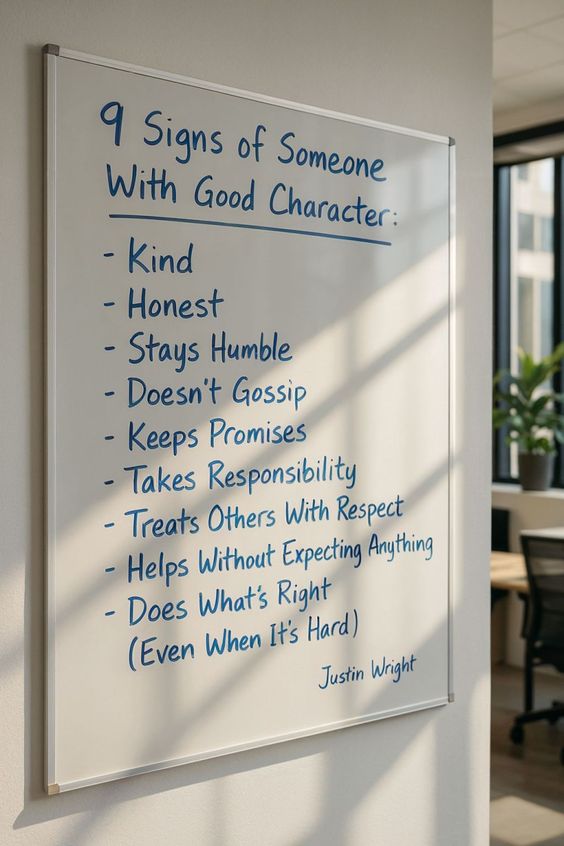 9 Signs of Someone
With Good Character:
- Kind
- Honest
- Stays Humble
- Doesn't Gossip
- Keeps Promises
- Takes Responsibility
- Treats Others With Respect
- Helps Without Expecting Anything
- Does What's Right
(Even When It's Hard)
Justin Wright